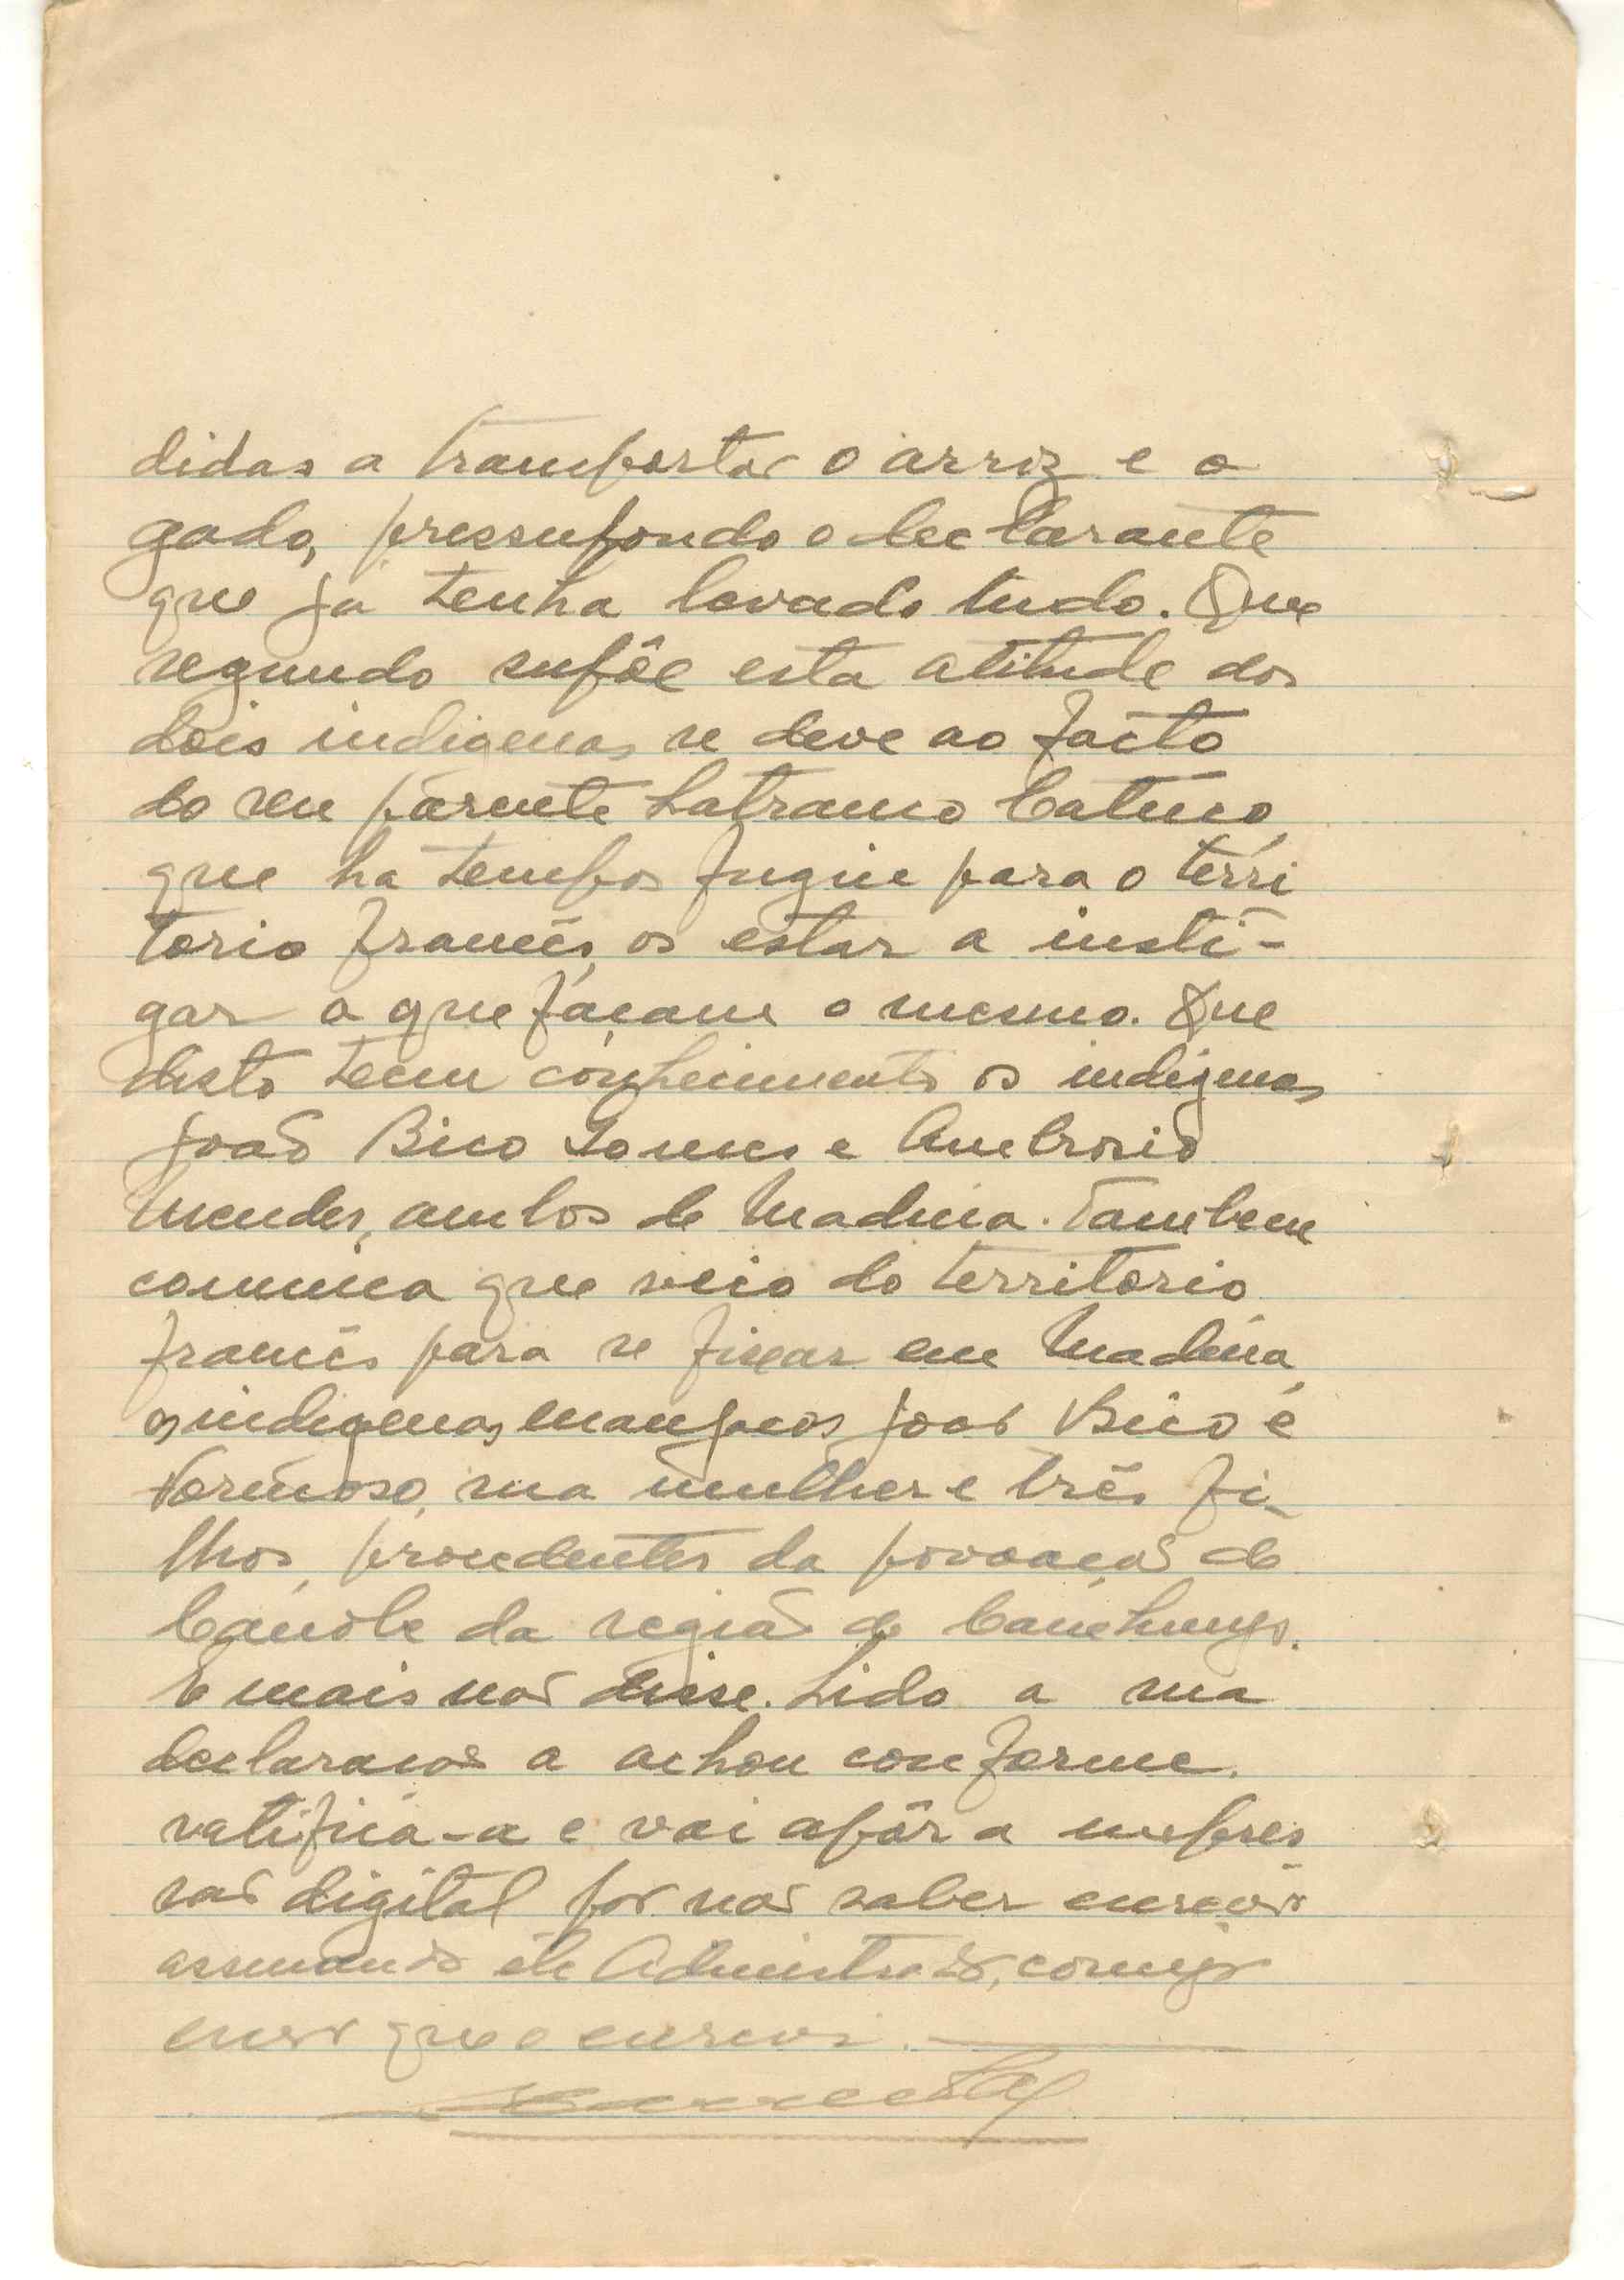 didas a transportar o arroz e o
gado, pressupondo o declarante
que já tenha levado tudo. Que
segundo supõe esta atitude dos
dois indigenas se deve ao facto
do seu parente Latranco Catuco,
que ha tempos fugiu para o terri
torio francês, os estar a insti-
gar a que façam o mesmo. Que
disto teem conhecimento os indígenas
João Bico Gomes e Ambrosio
Mendes, ambos de Madina. Tambem
comunica que veio do territorio
francês para se fixar em Madina,
os indigenas manjacos João Bico e
Formoso, sua mulher e três fi-
lhos, procedentes da povoação de
da região de Canchungo.
E mais não disse. Lido a sua
declaração a achou conforme,
ratifica-a e vai apôr a impres
são digital por não saber escrever
assinando êle Administrador, comigo
que o escrevi.